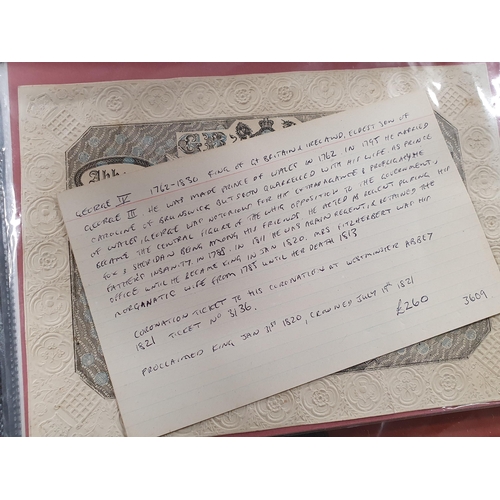 Abb
GEORGE IV 1762-1830 KING OF GT BRITAIN & IRELAND, ELDEST SON OF
GEORGE III. HE WAS MADE PRINCE OF WALES IN 1762. IN 1795 HE MARRIED
CAROLINE OF BRUNSWICK BUT SOON QUARRELLED WITH HIS WIFE AS PRINCE
OF WALES, GEORGE WAS NOTORIOUS FOR HIS EXTRAVAGANCE & PROFLIGACY. HE
BECAME THE CENTRAL FIGURE OF THE WHIG OPPOSITION TO THE GOVERNMENT,
FOX & SHERIDAN BEING AMONG HIS FRIENDS HE ACTED AS REGENT DURING HIS
FATHERS INSANITY. IN 1788. IN 1811 HE WAS AGAIN REGENT, & RETAINED THE
OFFICE UNTIL HE BECAME KING IN JAN 1820. MRS FITZHERBERT WAS HIS
MORGANATIC WIFE FROM 1785 UNTIL HER DEATH 1813
CORONATION TICKET TO HIS CORONATION AT WESTMINSTER ABBEY
1821 TICKET NO 3136.
PROCLAIMED KING JAN 31ST 1820, CROWNED JULY 19TH 1821
£260 3609